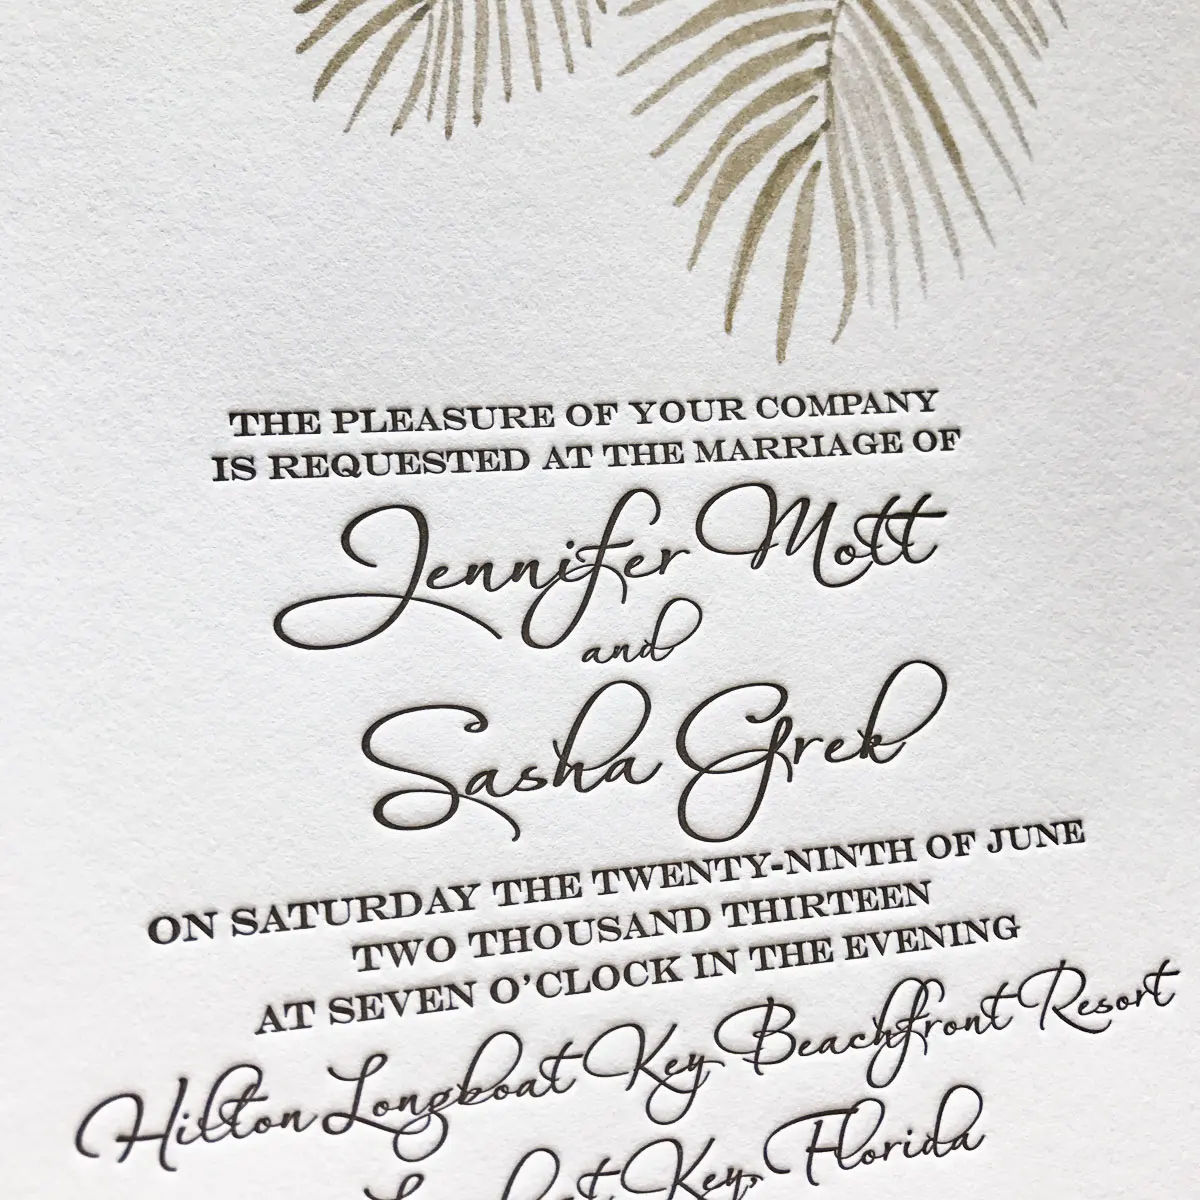 THE PLEASURE OF YOUR COMPANY
IS REQUESTED AT THE MARRIAGE OF
Jennifer Mott
and
Sasha Grek
ON SATURDAY THE TWENTY-NINTH OF JUNE
TWO THOUSAND THIRTEEN
AT SEVEN O’CLOCK IN THE EVENING
Hilton Longboat Key Beachfront Resort
Longboat Key, Florida